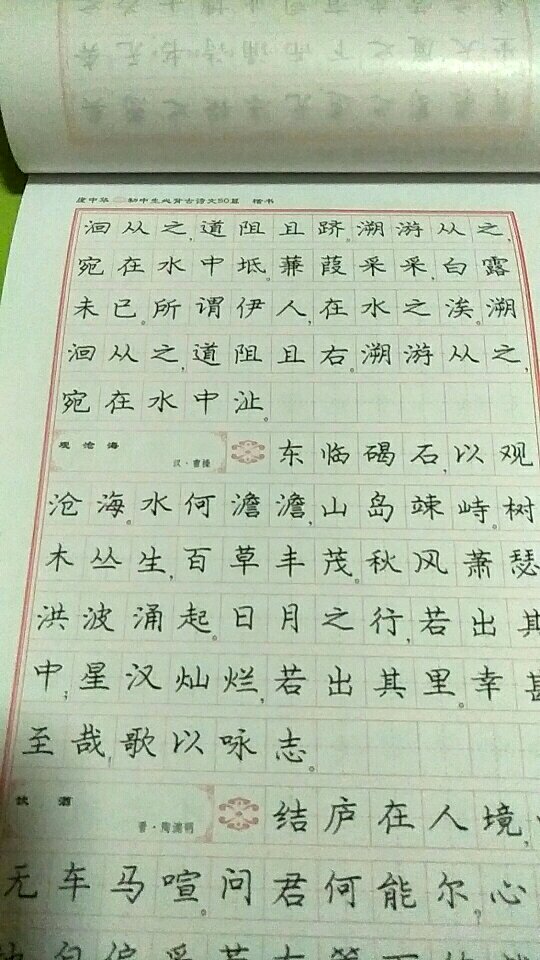 庞中华 初中生必背古诗文50篇 楷书
洄从之,道阻且跻。溯游从之,
宛在水中坻。蒹葭采采,白露
未已。所谓伊人,在水之涘。溯
洄从之,道阻且右。溯游从之,
宛在水中沚。
观沧海
汉·曹操
东临碣石,以观
沧海。水何澹澹,山岛竦峙。树
木丛生,百草丰茂。秋风萧瑟
洪波涌起。日月之行,若出其
中;星汉灿烂,若出其里。幸甚
至哉,歌以咏志。
饮酒
晋·陶渊明
结庐在人境,
无车马喧。问君何能尔,心